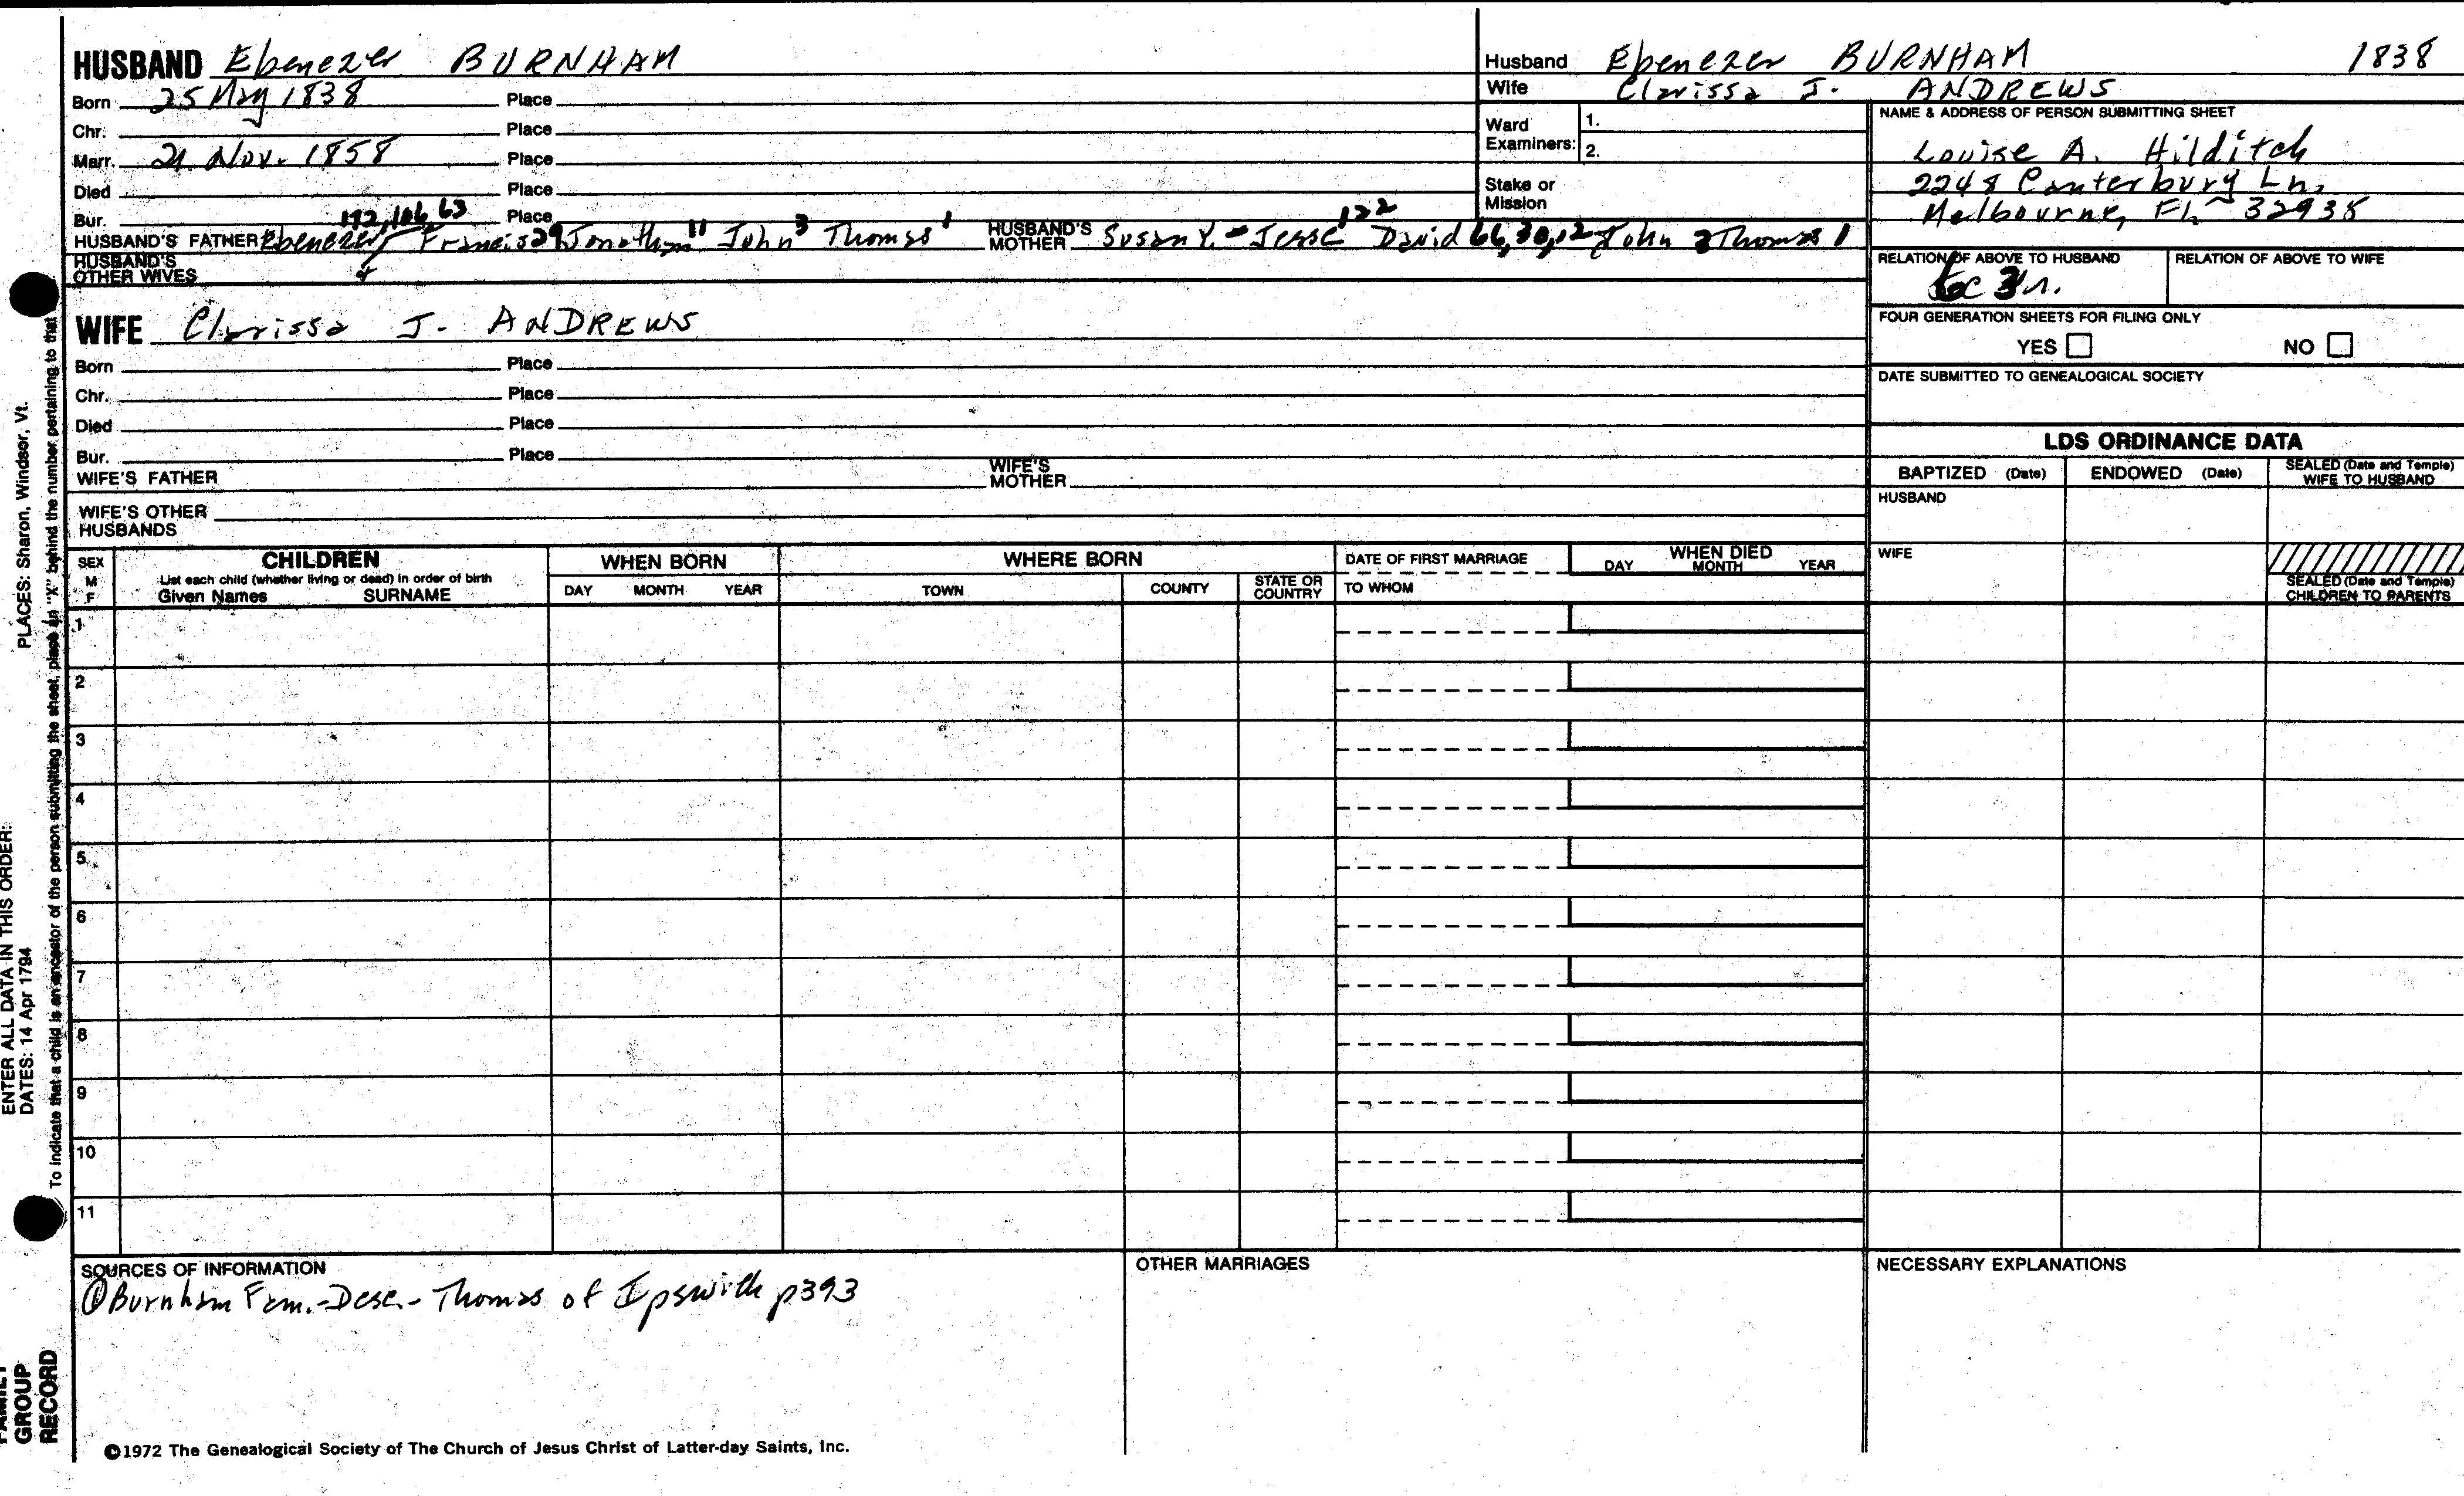 HUSBAND Ebenezer BURNHAM
Born 25 May 1838 Place
Chr. Place
Marr. 21 Nov. 1858 Place
Died Place
Bur. 172,106,63 Place
HUSBAND'S FATHER Ebenezer, Francis 29 Jonathan 11 John 3 Thomas 1 HUSBAND'S MOTHER Susan Y. - Jesse 122 David 66,30,12 John 3 Thomas 1
HUSBAND'S OTHER WIVES
Husband Ebenezer BURNHAM 1838
Wife Clarissa J. ANDREWS
Ward Examiners: 1.
2.
Stake or Mission
NAME & ADDRESS OF PERSON SUBMITTING SHEET
Louise A. Hilditch
2248 Canterbury Ln.
Melbourne, Fl 32935
RELATION OF ABOVE TO HUSBAND RELATION OF ABOVE TO WIFE
6c 3r.
FOUR GENERATION SHEETS FOR FILING ONLY
YES NO
DATE SUBMITTED TO GENEALOGICAL SOCIETY
WIFE Clarissa J. ANDREWS
Born Place
Chr. Place
Died Place
Bur. Place
WIFE'S FATHER WIFE'S MOTHER
WIFE'S OTHER HUSBANDS
LDS ORDINANCE DATA
BAPTIZED (Date) ENDOWED (Date) SEALED (Date and Temple) WIFE TO HUSBAND
HUSBAND
WIFE
SEALED (Date and Temple) CHILDREN TO PARENTS
SEX M F
CHILDREN
List each child (whether living or dead) in order of birth
Given Names SURNAME
WHEN BORN
DAY MONTH YEAR
WHERE BORN
TOWN COUNTY STATE OR COUNTRY
DATE OF FIRST MARRIAGE
TO WHOM
WHEN DIED
DAY MONTH YEAR
1
2
3
4
5
6
7
8
9
10
11
SOURCES OF INFORMATION
① Burnham Fam.-Desc.- Thomas of Ipswich p393
OTHER MARRIAGES
NECESSARY EXPLANATIONS
©1972 The Genealogical Society of The Church of Jesus Christ of Latter-day Saints, Inc.
PLACES: Sharon, Windsor, Vt.
ENTER ALL DATA IN THIS ORDER:
DATES: 14 Apr 1794
To indicate that a child is an ancestor of the person submitting the sheet, place an "X" behind the number pertaining to that
FAMILY GROUP RECORD